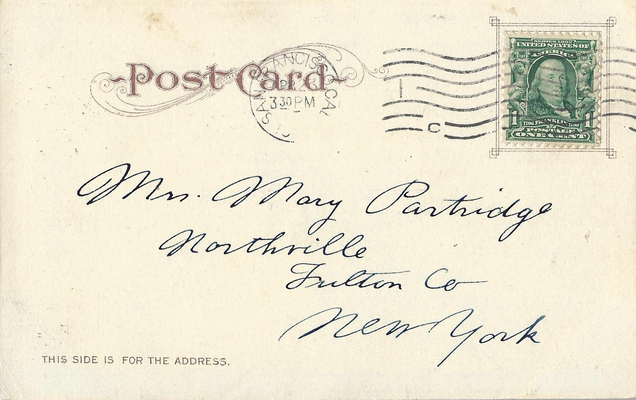 Post Card
SAN FRANCISCO, CAL
3 30 PM
C
SERIES 1902
UNITED STATES OF AMERICA
1 FRANKLIN 1
POSTAGE
ONE CENT
Mrs. Mary Partridge
Northville
Fulton Co
New York
THIS SIDE IS FOR THE ADDRESS.